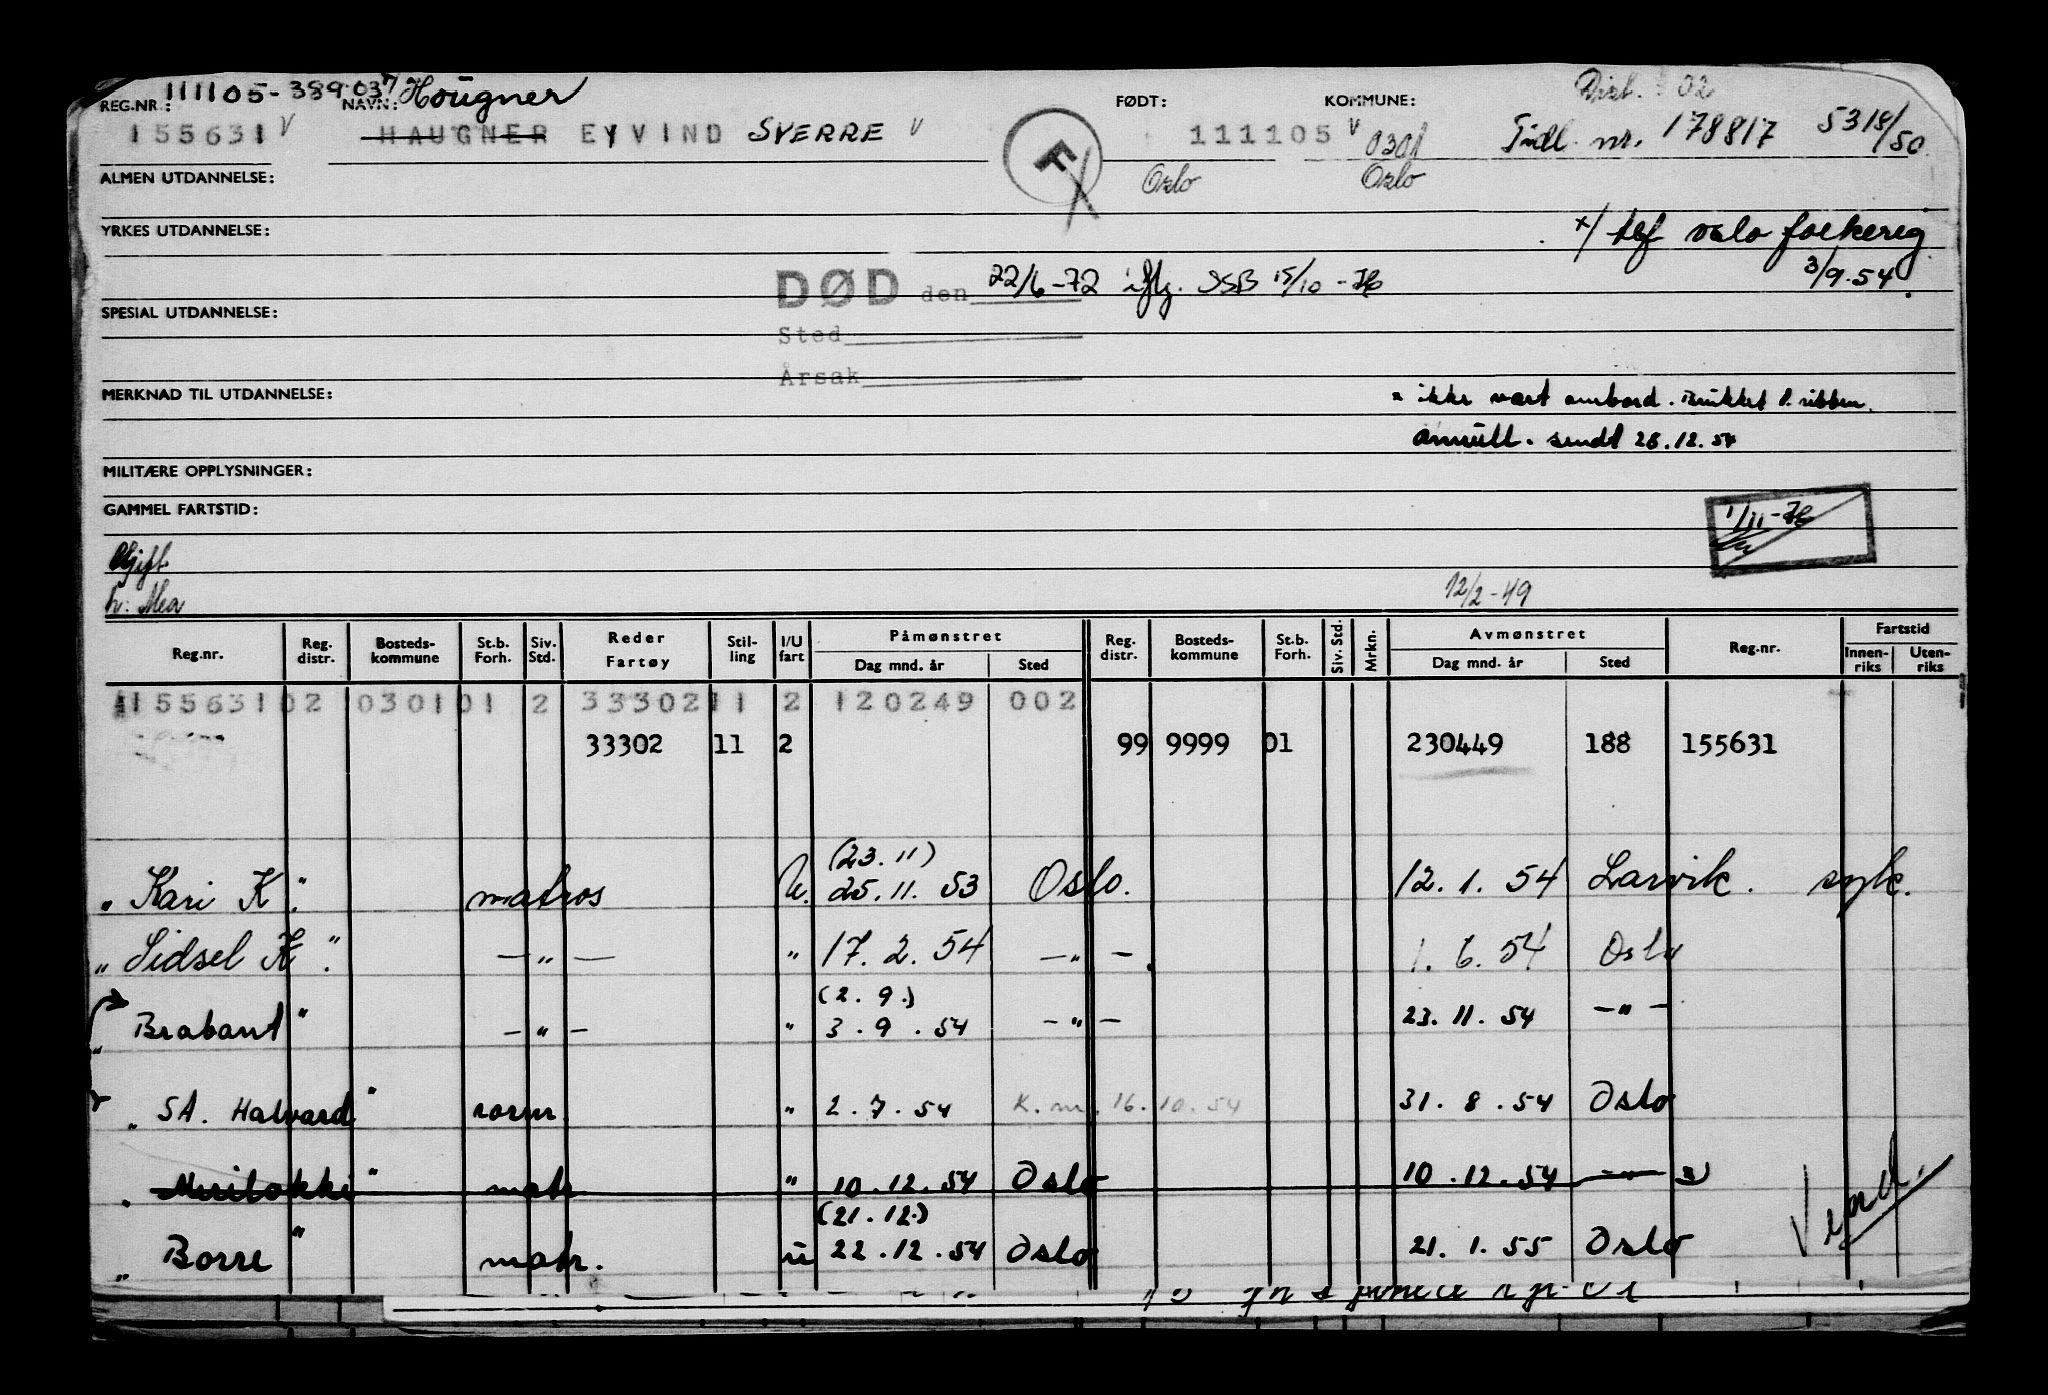 111105-389.03 Hougner Dist. 02
REG.NR.: NAVN: FØDT: KOMMUNE:
155631 V HAUGNER EYVIND SVERRE V F 111105 V 0301 Tidl. nr. 178817 5318/50
ALMEN UTDANNELSE: Oslo Oslo
YRKES UTDANNELSE: x/ tlf oslo folkereg
3/9.54
DØD den 22/6-72 iflg. SSB 15/10
SPESIAL UTDANNELSE:
Sted
Årsak
MERKNAD TIL UTDANNELSE: ikke vært ombord. Brukket 1. ribben.
annull. sendt 28.12.54
MILITÆRE OPPLYSNINGER:
GAMMEL FARTSTID: 1/11
Gift
h: Mea 12/2-49
Reg.nr. Reg. distr. Bosteds-kommune St.b. Forh. Siv. Std. Reder Fartøy Stil-ling I/U fart Påmønstret Dag mnd. år Sted Reg. distr. Bosteds-kommune St.b. Forh. Siv. Std. Mrkn. Avmønstret Dag mnd. år Sted Reg.nr. Fartstid Innen-riks Uten-riks
155631 02 0301 01 2 33302 11 2 120249 002
33302 11 2 99 9999 01 230449 188 155631
(23.11)
" Kari K." matros U. 25.11.53 Oslo. 12.1.54 Larvik. syk.
" Sidsel K." — " — " 17.2.54 — " — 1.6.54 Oslo
(2.9.)
" Brabant " — " — " 3.9.54 — " — 23.11.54 — " —
" SA. Halvard " " 2.7.54 K.m. 16.10.54 31.8.54 Oslo
" " matr " 10.12.54 Oslo 10.12.54
(21.12.)
" Borre " matr. u 22.12.54 Oslo 21.1.55 Oslo